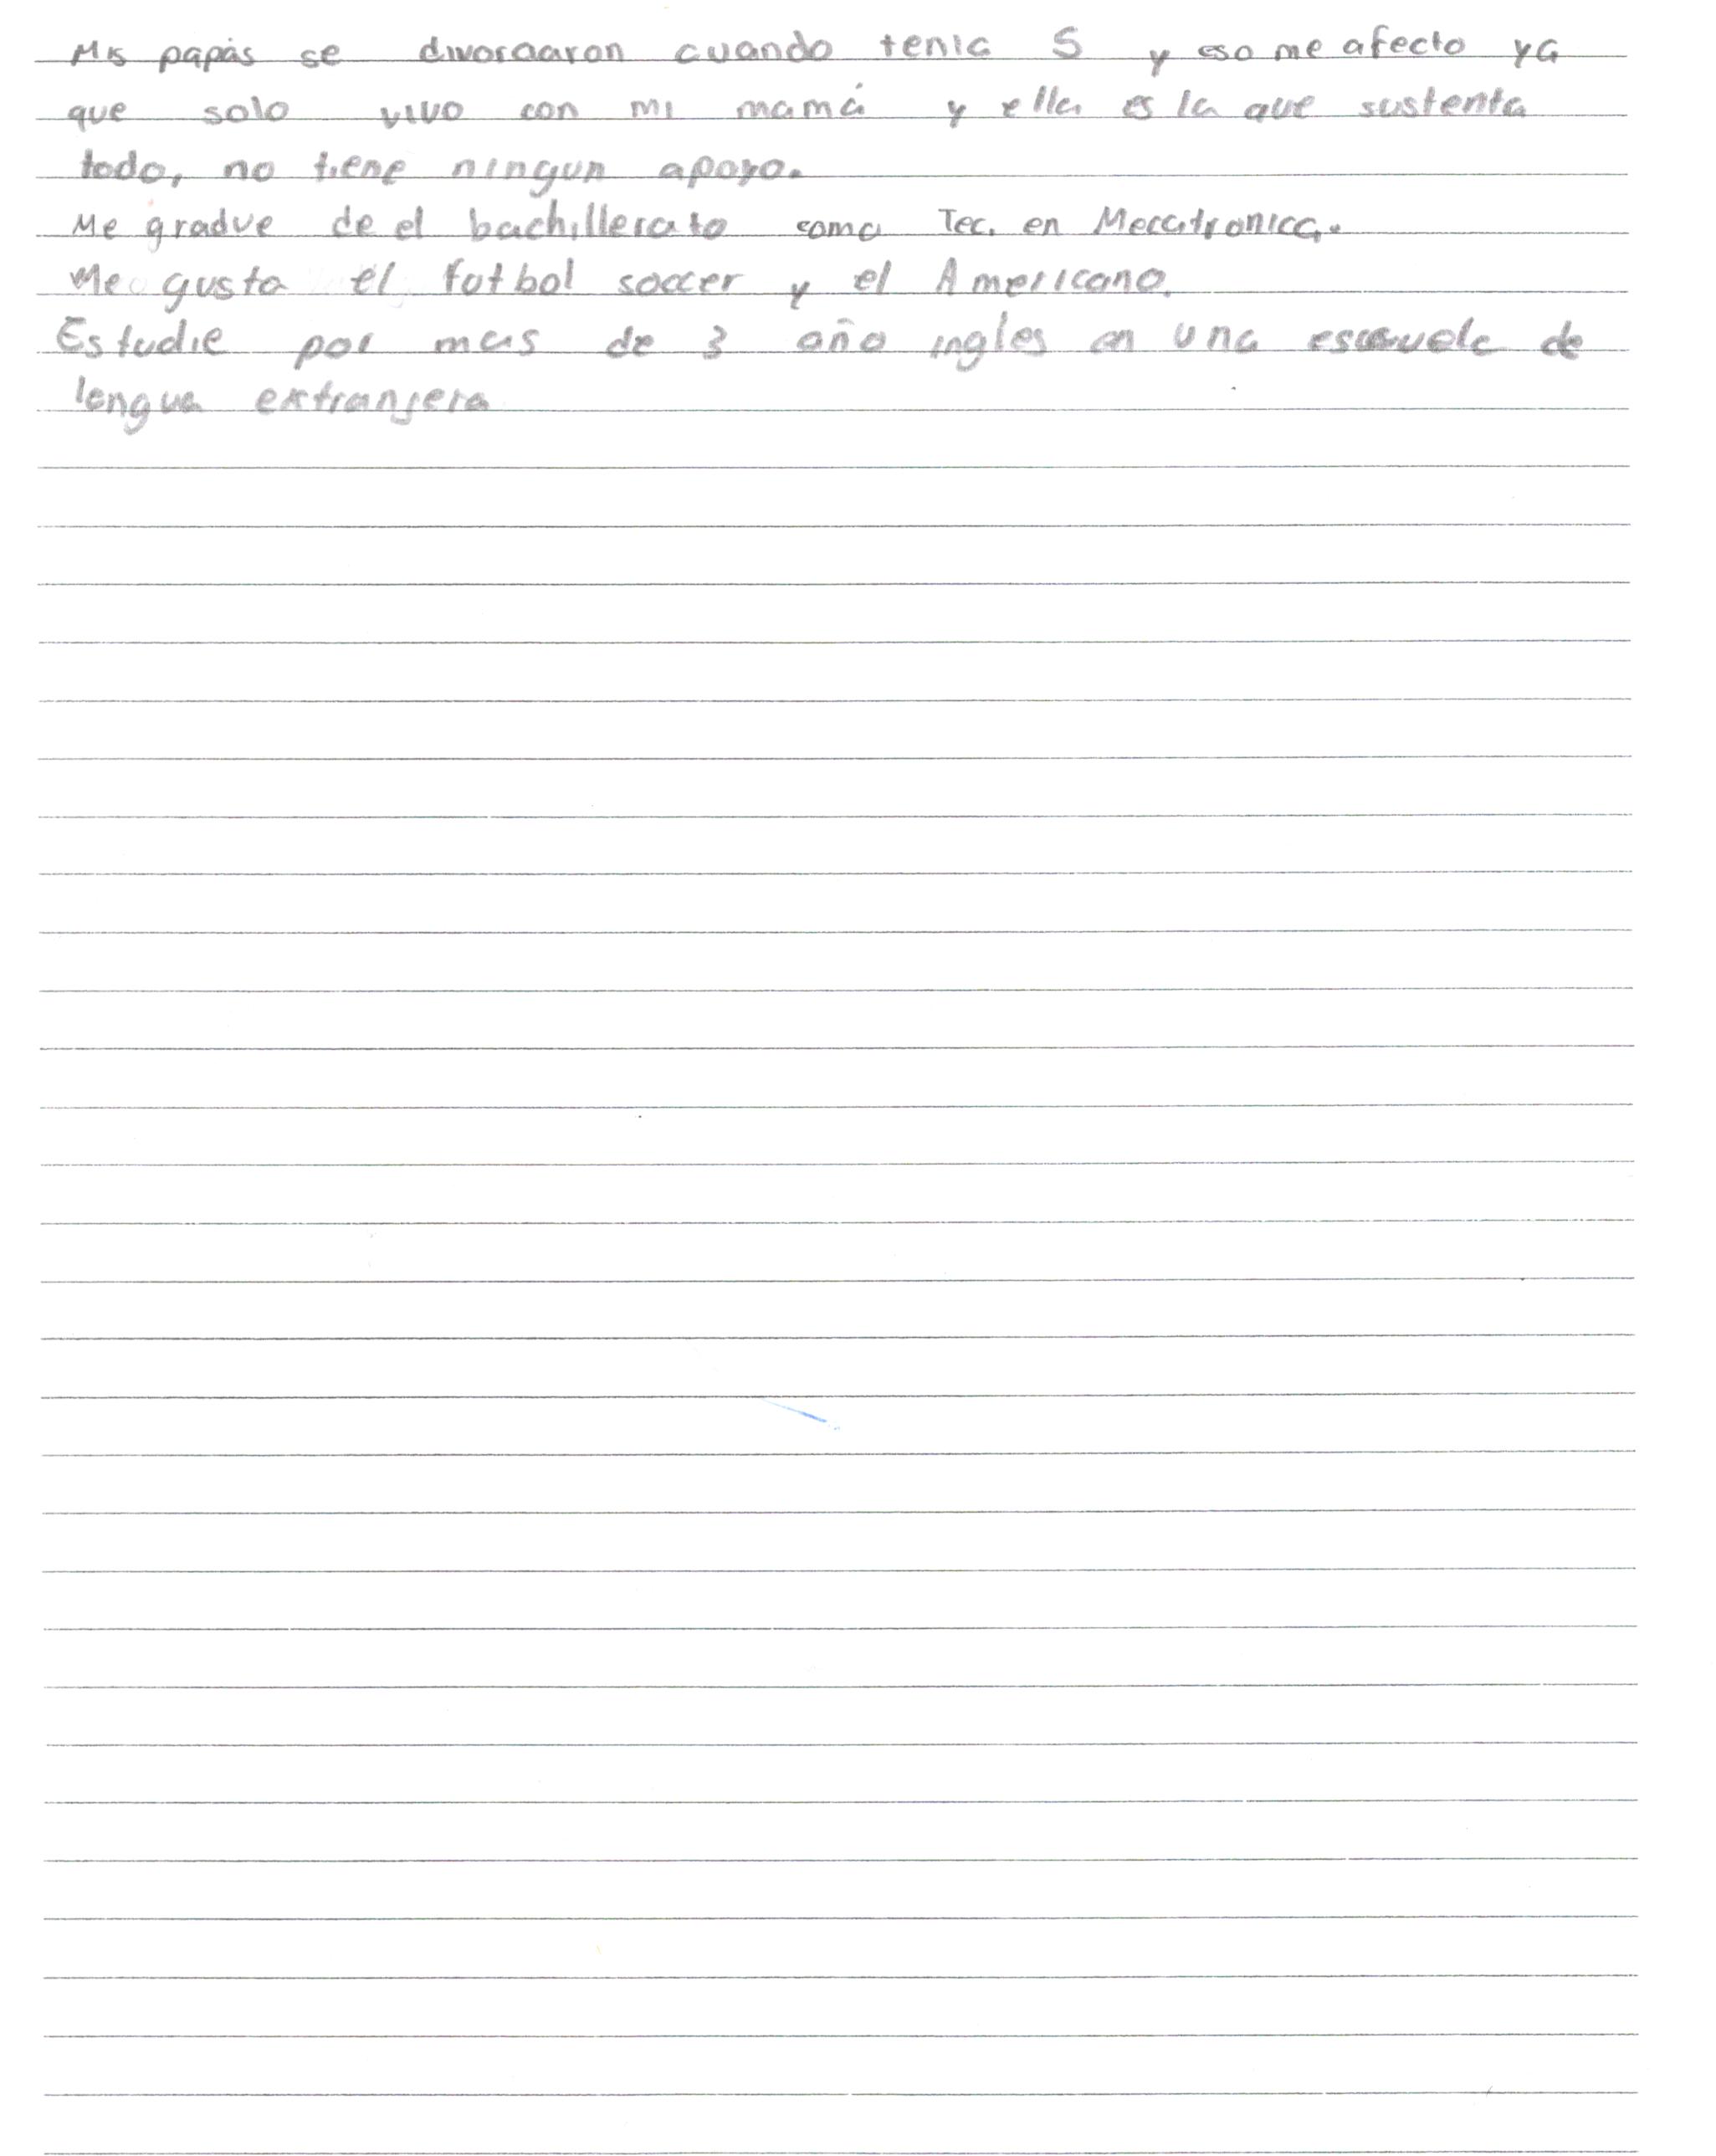 Mis papás se divorciaron cuando tenia 5 y eso me afecto ya
que solo vivo con mi mamá y ella es la que sustenta
todo, no tiene ningun apoyo.
Me gradue de el bachillerato como Tec. en Mecatronica.
Me gusta el futbol soccer y el Americano.
Estudie por mas de 3 año ingles en una escuela de
lengua extranjera